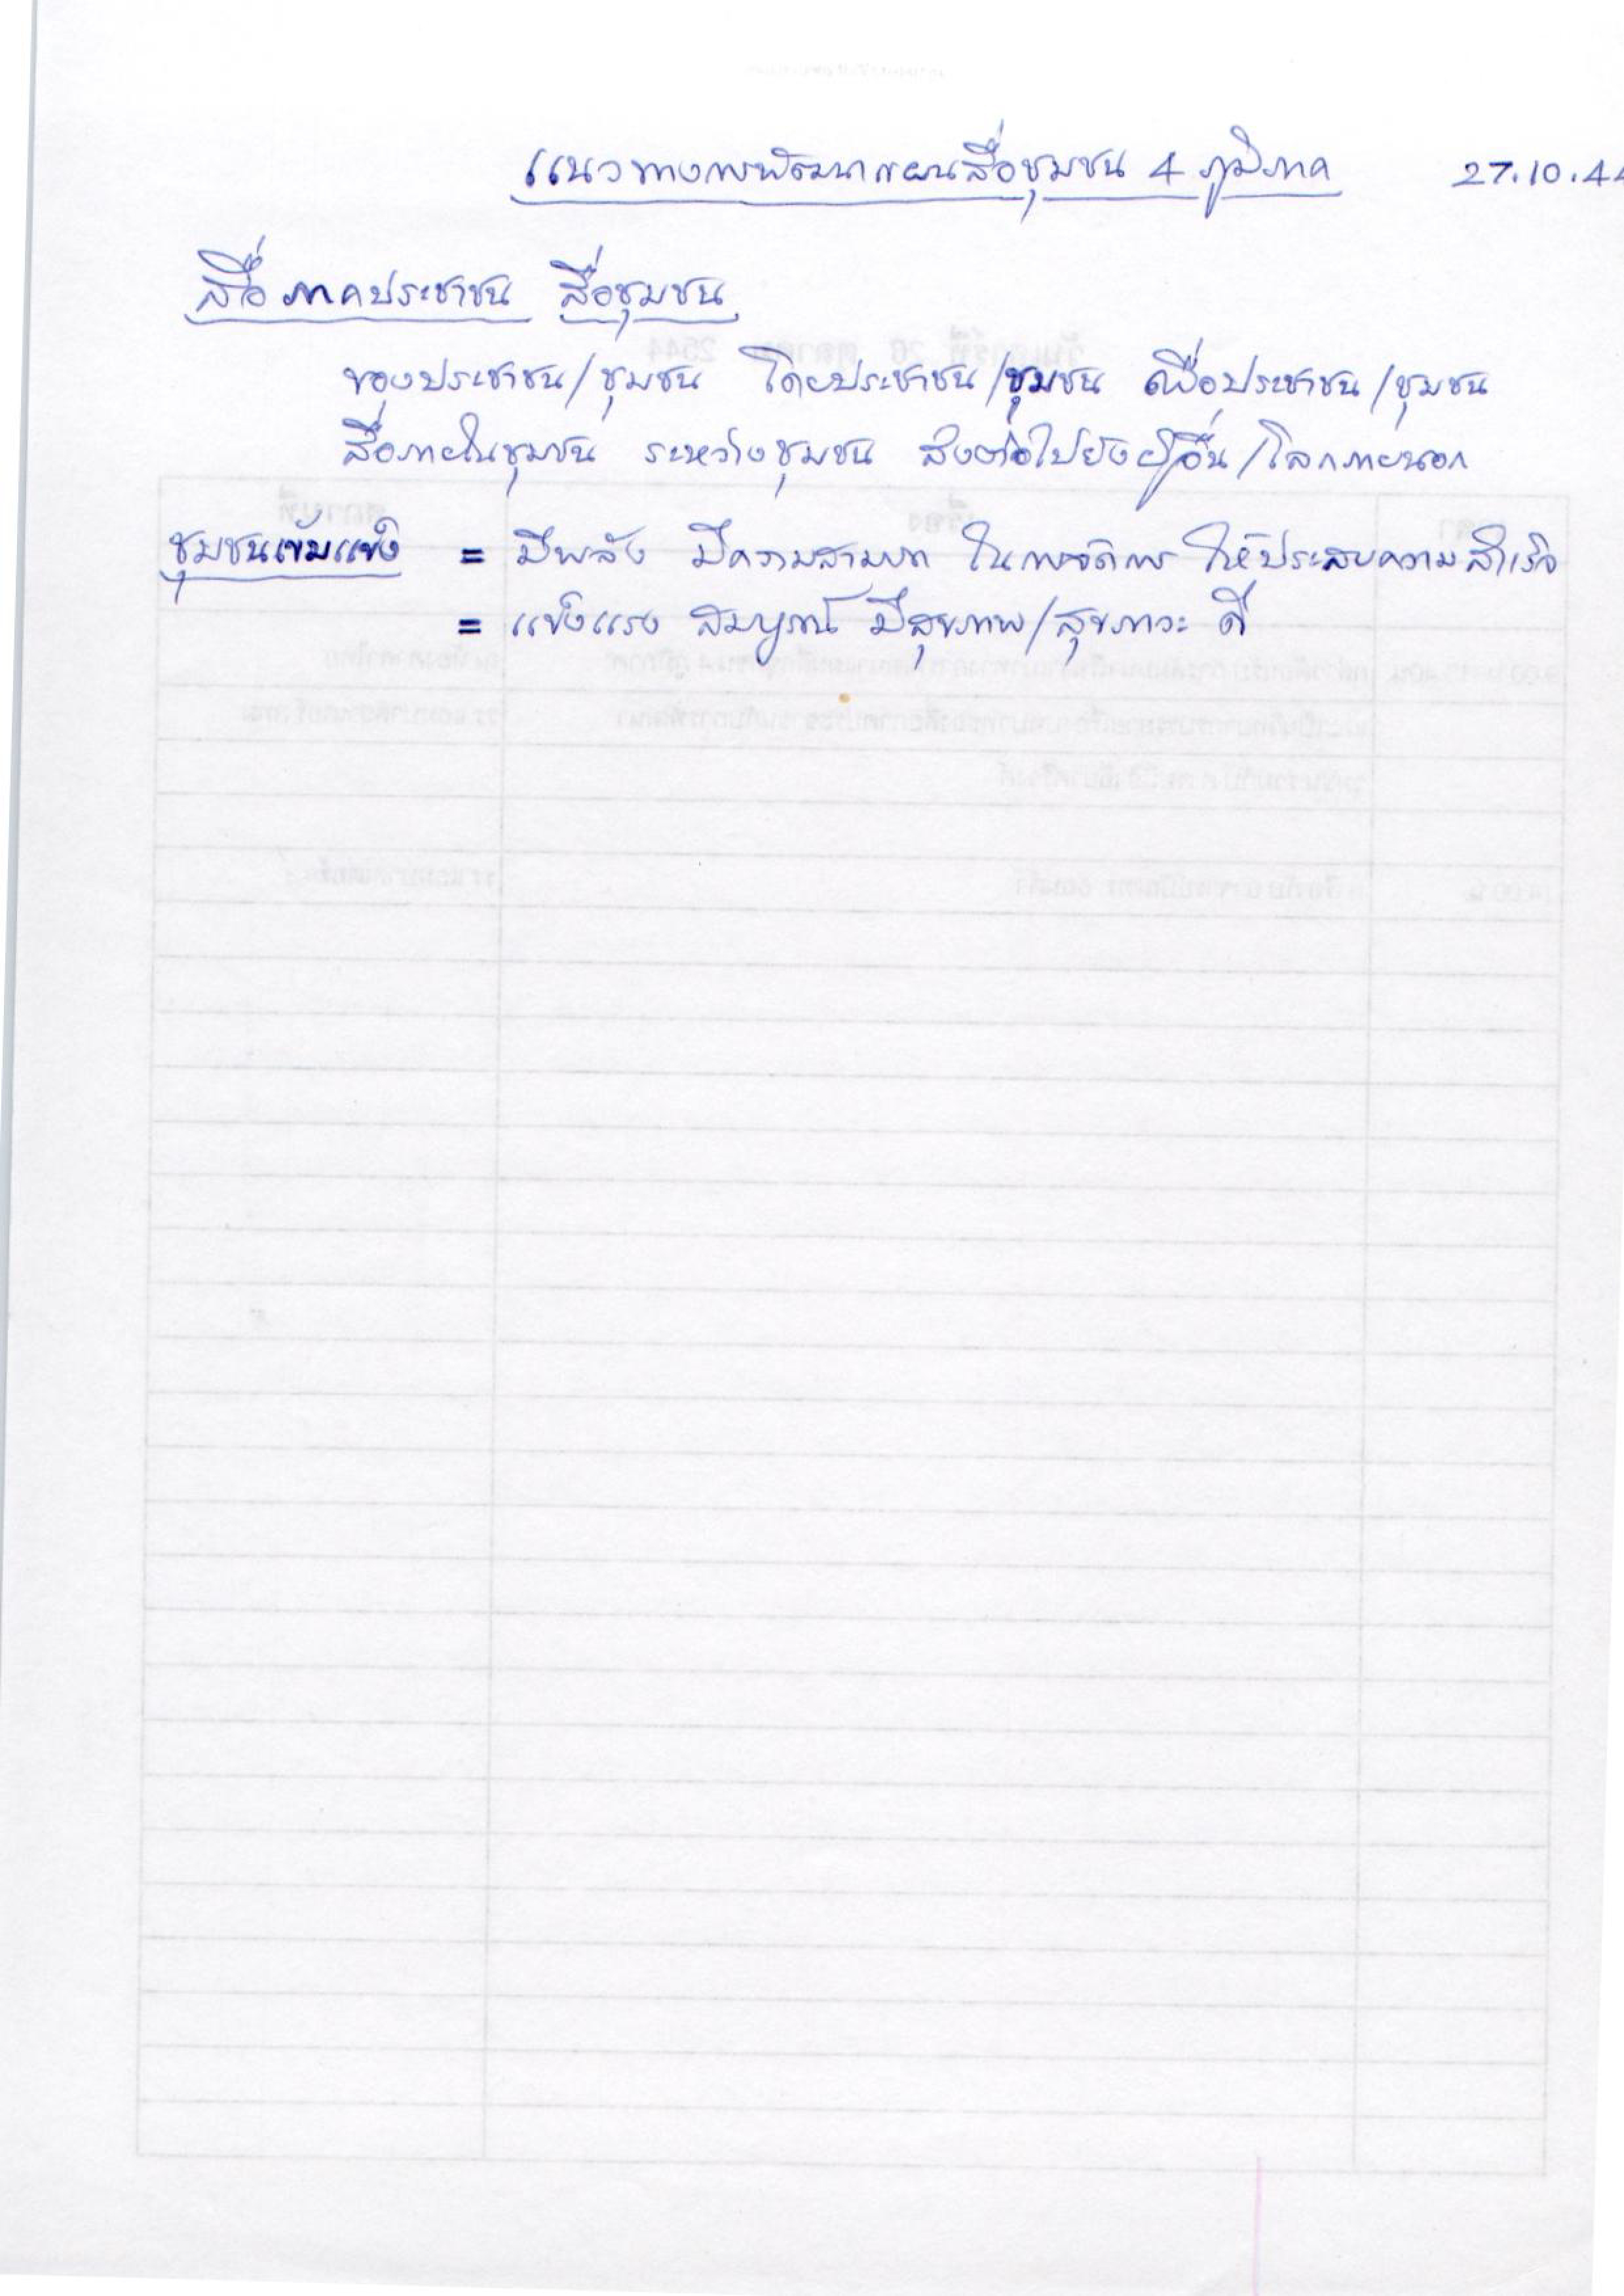 แนวทางการพัฒนาแผนสื่อชุมชน 4 ภูมิภาค 27.10.44
สื่อภาคประชาชน สื่อชุมชน
ของประชาชน/ชุมชน โดยประชาชน/ชุมชน เพื่อประชาชน/ชุมชน
สื่อภายในชุมชน ระหว่างชุมชน ส่งต่อไปยังผู้อื่น/โลกภายนอก
ชุมชนเข้มแข็ง = มีพลัง มีความสามารถ ในการจัดการ ให้ประสบความสำเร็จ
= แข็งแรง สมบูรณ์ มีสุขภาพ/สุขภาวะ ดี